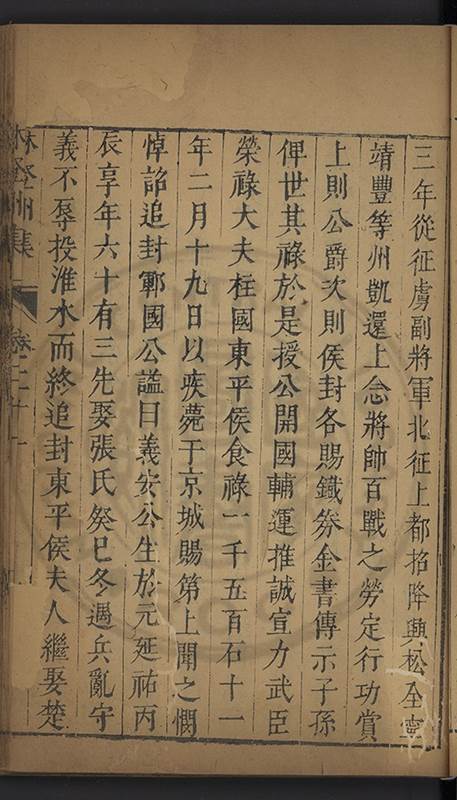 三年從征虜副將軍北征上都招降興松全寧
靖豐等州凱還上念將帥百戰之勞定行功賞
上則公爵次則侯封各賜鐵劵金書傳示子孫
俾世其祿於是授公開國輔運推誠宣力武臣
榮祿大夫柱國東平侯食祿一千五百石十一
年二月十九日以疾薨于京城賜第上聞之憫
悼詔追封鄆國公謚曰義安公生於元延祐丙
辰享年六十有三先娶張氏癸巳冬遇兵亂守
義不辱投淮水而終追封東平侯夫人繼娶楚
林登州集 卷二十一